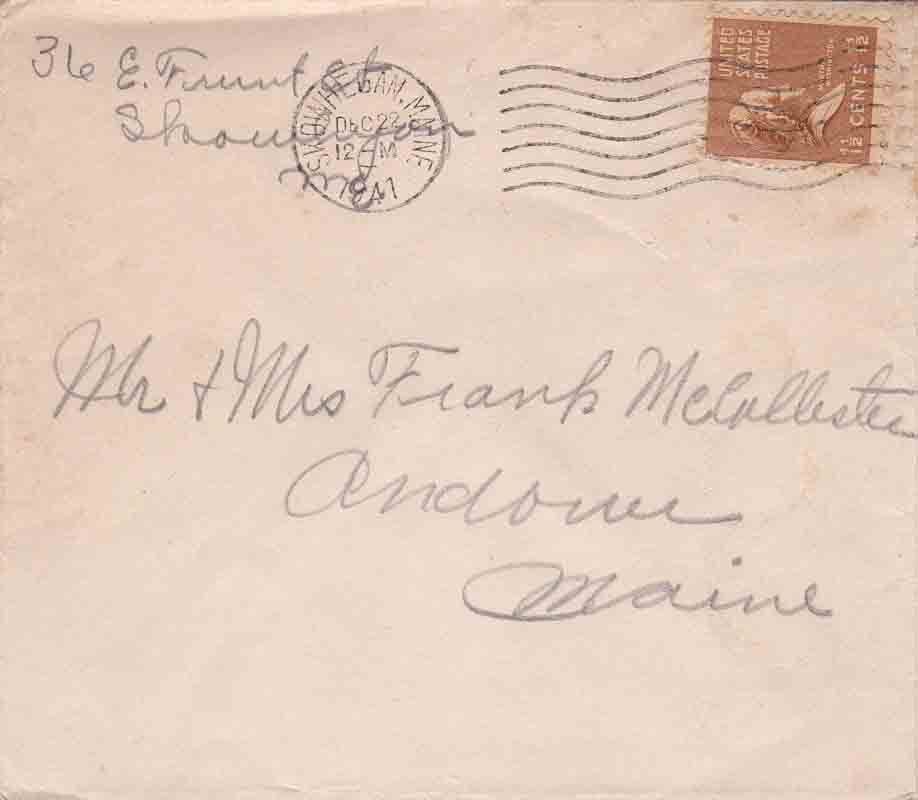 36 E. Front St
Skowhegan
Me
SKOWHEGAN, MAINE
DEC 22
12 M
1941
UNITED
STATES
POSTAGE
MARTHA
WASHINGTON
1½ CENTS 1½
Mr & Mrs Frank McCollister
Andover
Maine